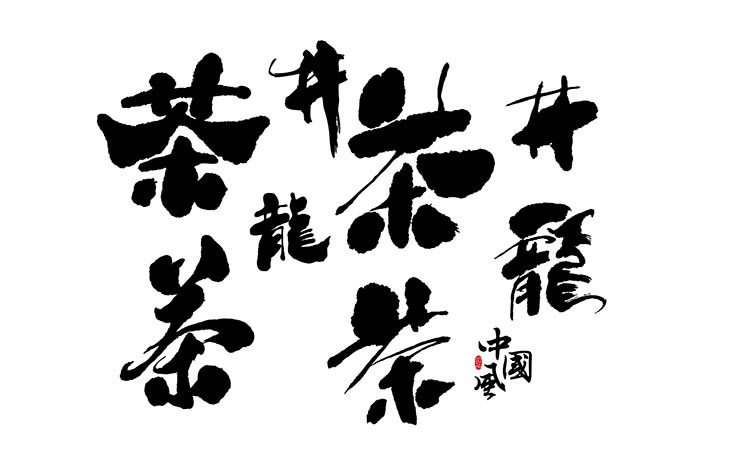 茶
井
茶
井
龍
龍
茶
茶
中國風